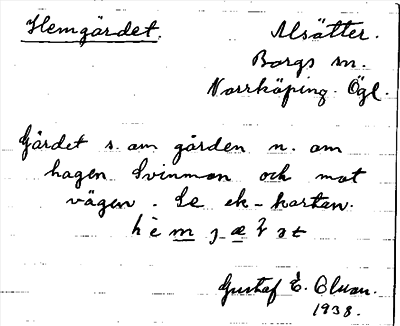 Hemgärdet.
Alsätter.
Borgs sn.
Norrköping. Ögl.
Gärdet s. om gården n. om
hagen Svinmon och mot
vägen. Se ek-kartan.
Gustaf E. Olson.
1938.